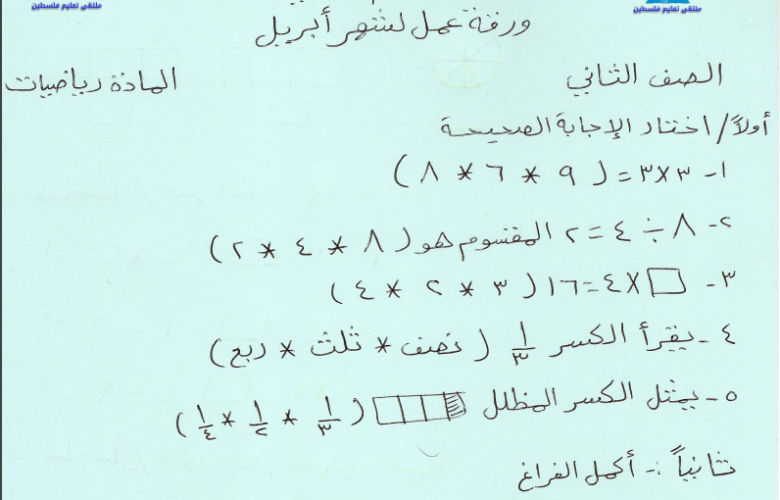 ملتقى تعليم فلسطين ملتقى تعليم فلسطين
ورقة عمل لشهر أبريل
الصف الثاني المادة رياضيات
أولاً / اختار الإجابة الصحيحة
١- ٣×٣ = ( ٩ * ٦ * ٨ )
٢- ٨ ÷ ٤ = ٢ المقسوم هو ( ٨ * ٤ * ٢ )
٣- □ × ٤ = ١٦ ( ٣ * ٢ * ٤ )
٤- يقرأ الكسر ١/٣ ( نصف * ثلث * ربع )
٥- يمثل الكسر المظلل ( ١/٣ * ١/٢ * ١/٤ )
ثانياً :- أكمل الفراغ